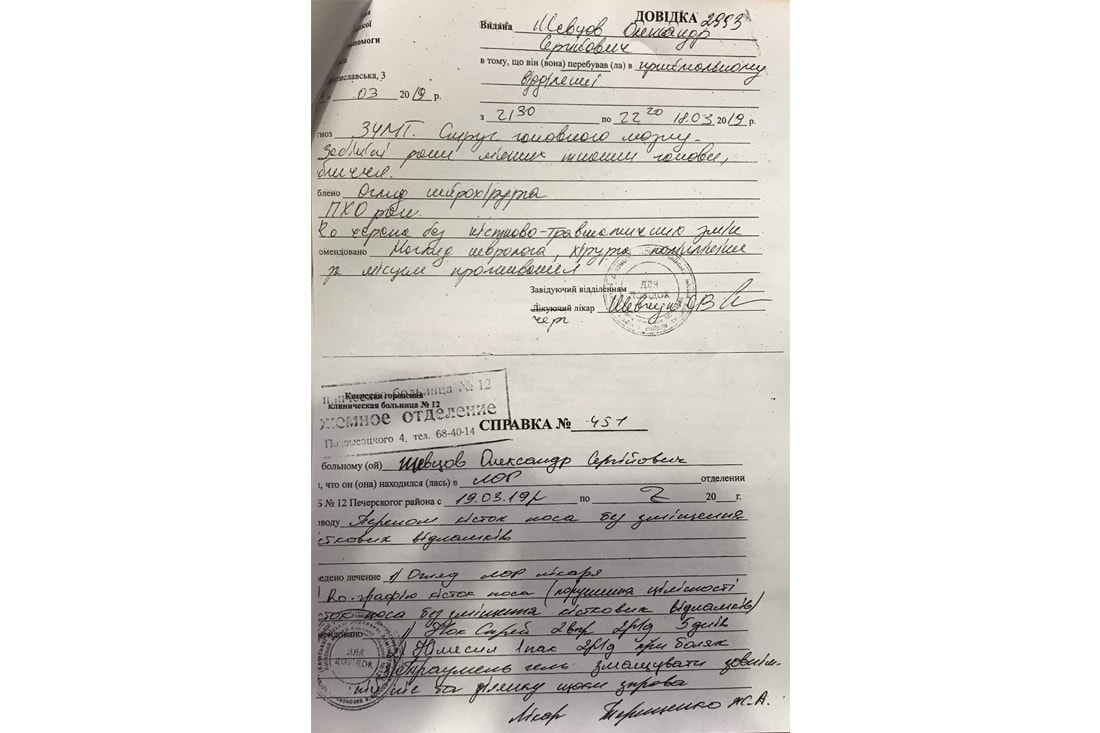 ДОВІДКА 2993
Видана Шевцов Олександр
Сергійович
в тому, що він (вона) перебував (ла) в приймальному
відділенні
з 21 30 по 22 20 18.03 2019 р.
помоги
тиславська, 3
03 2019 р.
ноз ЗЧМТ. Струс головного мозку.
Забійні рани мягких тканин голови,
обличчя.
блено Огляд нейрохірурга
ПХО ран.
черепа без кістково-травматичних змін
омендовано Нагляд невролога, хірурга поліклініки
за місцем проживання
Завідуючий відділенням
Лікуючий лікар
черг
ДЛЯ
ДОВІДОК
Киевская городская
клиническая больница № 12
иническая больница № 12
жемное отделение
Подвысоцкого 4, тел. 68-40-14
СПРАВКА № 451
больному (ой) Шевцов Олександр Сергійович
, что он (она) находился (лась) в ЛОР отделении
№ 12 Печерског района с 19.03.19р по 20 г.
воду Перелом кісток носа без зміщення
істкових відламків
ведено лечение 1) Огляд ЛОР лікаря
Ro-графію кісток носа (порушення цілісності
кісток носа без зміщення кісткових відламків)
мендовано 1) Нок Спрей 2 впр 2р/д 5 днів
2) Німесил 1 пак 2р/д при болях
3) Траумель гель змащувати зовніш-
ніс та ділянку щоки справа
Лікар Терещенко Ж.А.
ДЛЯ
ДОВІДОК